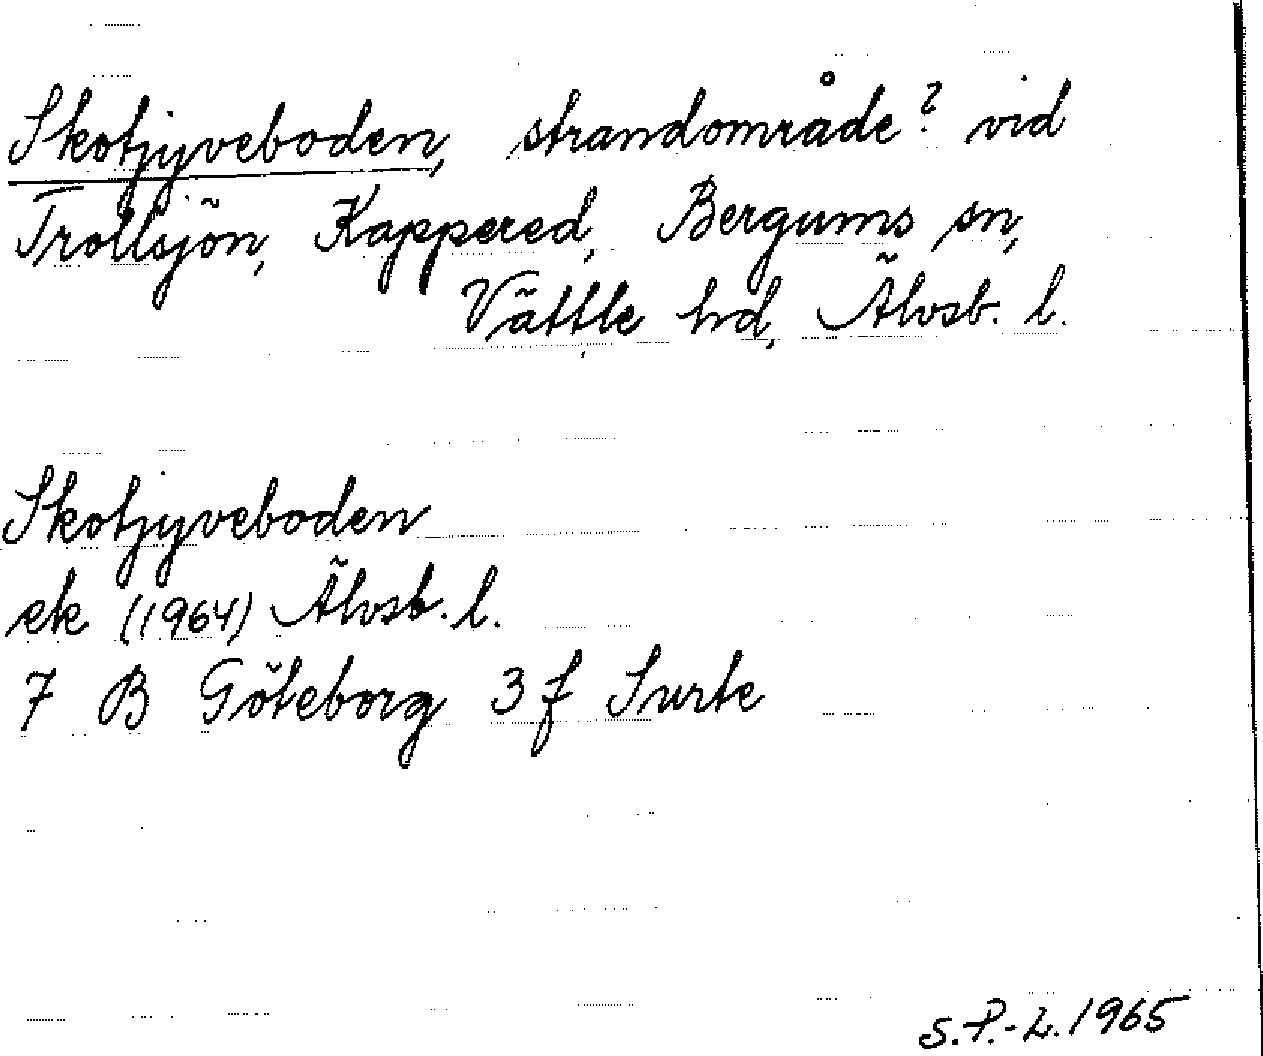 Skotjyveboden, strandområde? vid
Trollsjön, Kappered, Bergums sn,
Vättle hd, Älvsb. l.
Skotjyveboden
ek (1964) Älvsb. l.
7 B Göteborg 3 f Surte
S.P.-L. 1965